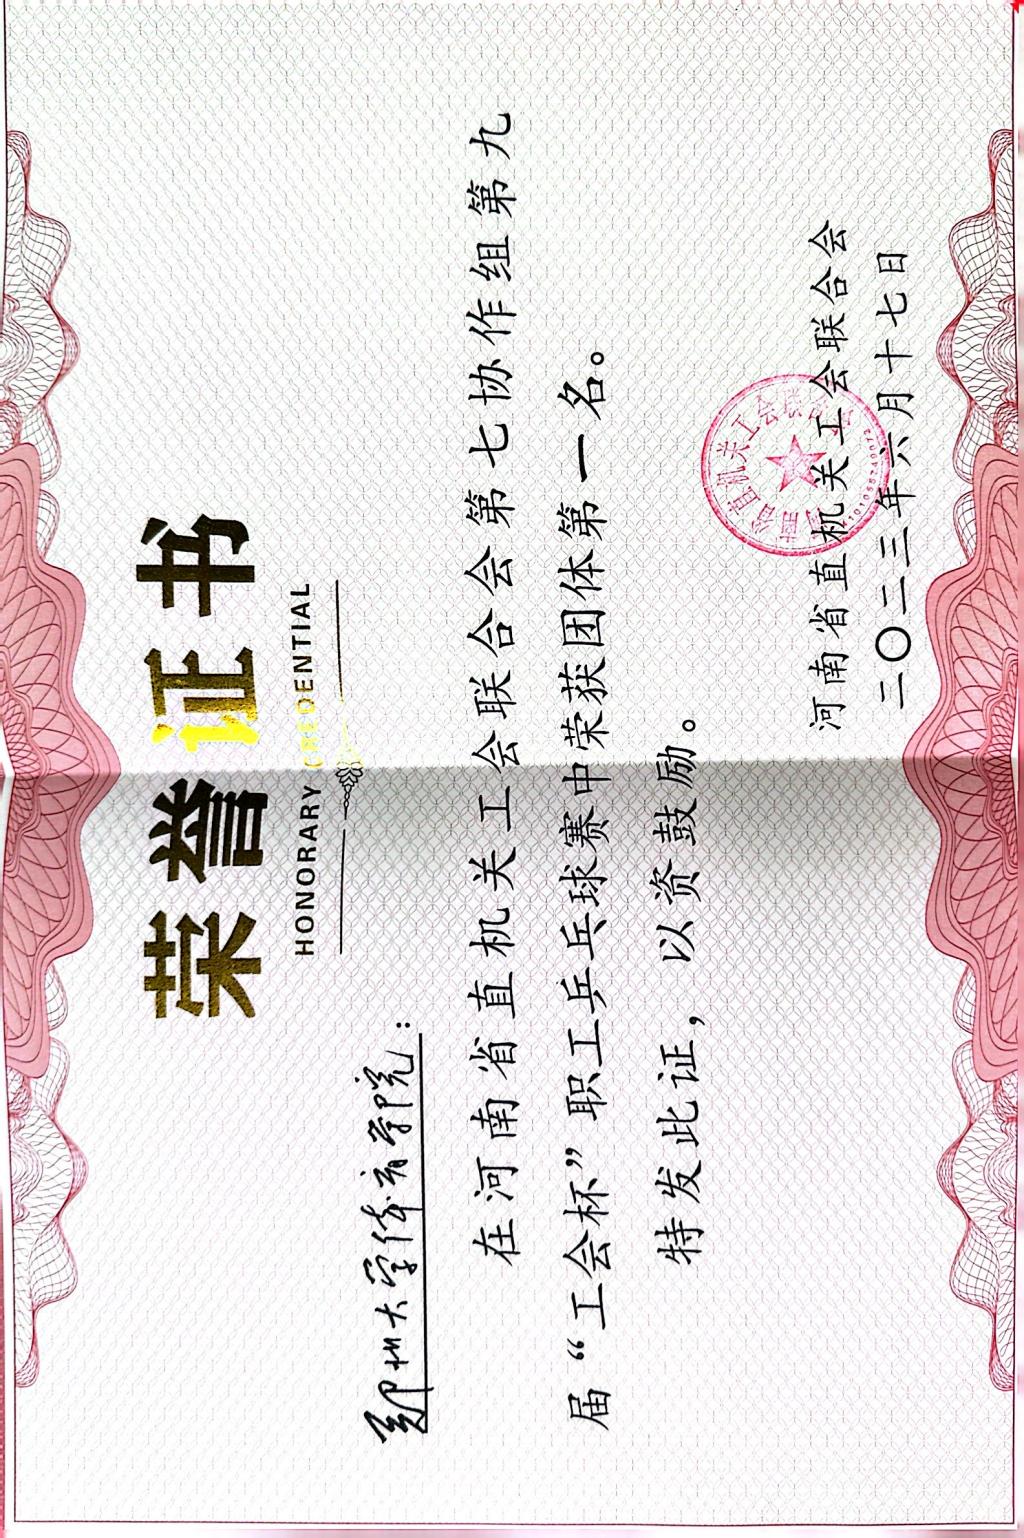 荣誉证书
HONORARY CREDENTIAL
郑州大学体育学院：
在河南省直机关工会联合会第七协作组第九
届“工会杯”职工乒乓球赛中荣获团体第一名。
特发此证，以资鼓励。
河南省直机关工会联合会
二〇二三年六月十七日